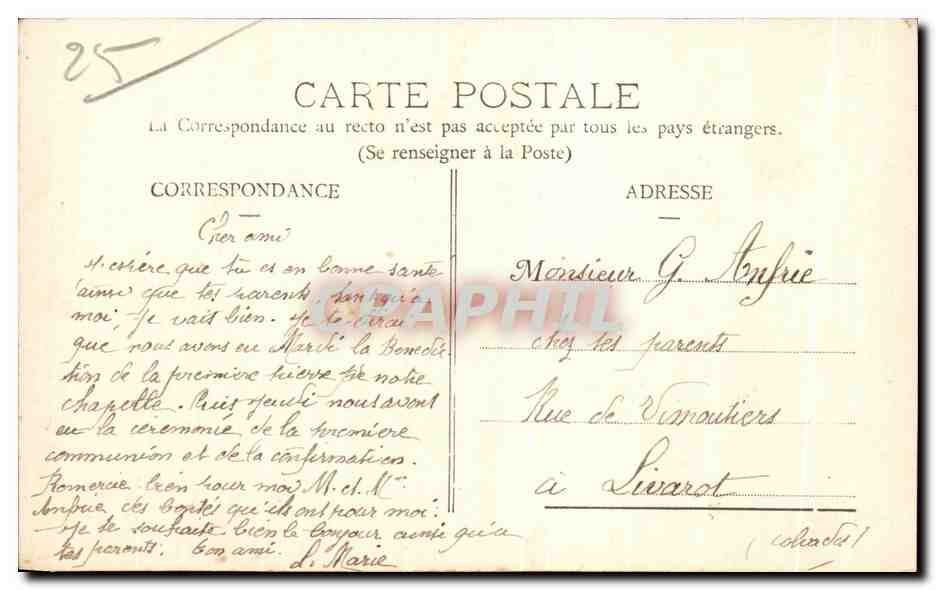 25
CARTE POSTALE
La Correspondance au recto n'est pas acceptée par tous les pays étrangers.
(Se renseigner à la Poste)
CORRESPONDANCE
Cher ami
J'espère que tu es en bonne santé
ainsi que tes parents, tant qu'à
moi, je vais bien. Je te dirai
que nous avons eu Mardi la Bénédic
tion de la première pierre de notre
chapelle. Puis Jeudi nous avons
eu la cérémonie de la première
communion et de la confirmation.
Remercie bien pour moi M. et Mme
Anfrie des bontés qu'ils ont pour moi.
Je te souhaite bien le bonjour ainsi qu'à
tes parents. Ton ami.
L. Marie
ADRESSE
Monsieur G. Anfrie
chez ses parents
Rue de Vimoutiers
à Livarot
(Calvados)
CPAPHIL